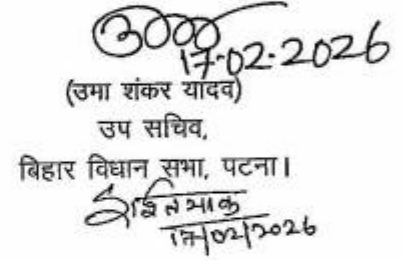 17-02-2026
(उमा शंकर यादव)
उप सचिव,
बिहार विधान सभा, पटना।
17/02/2026